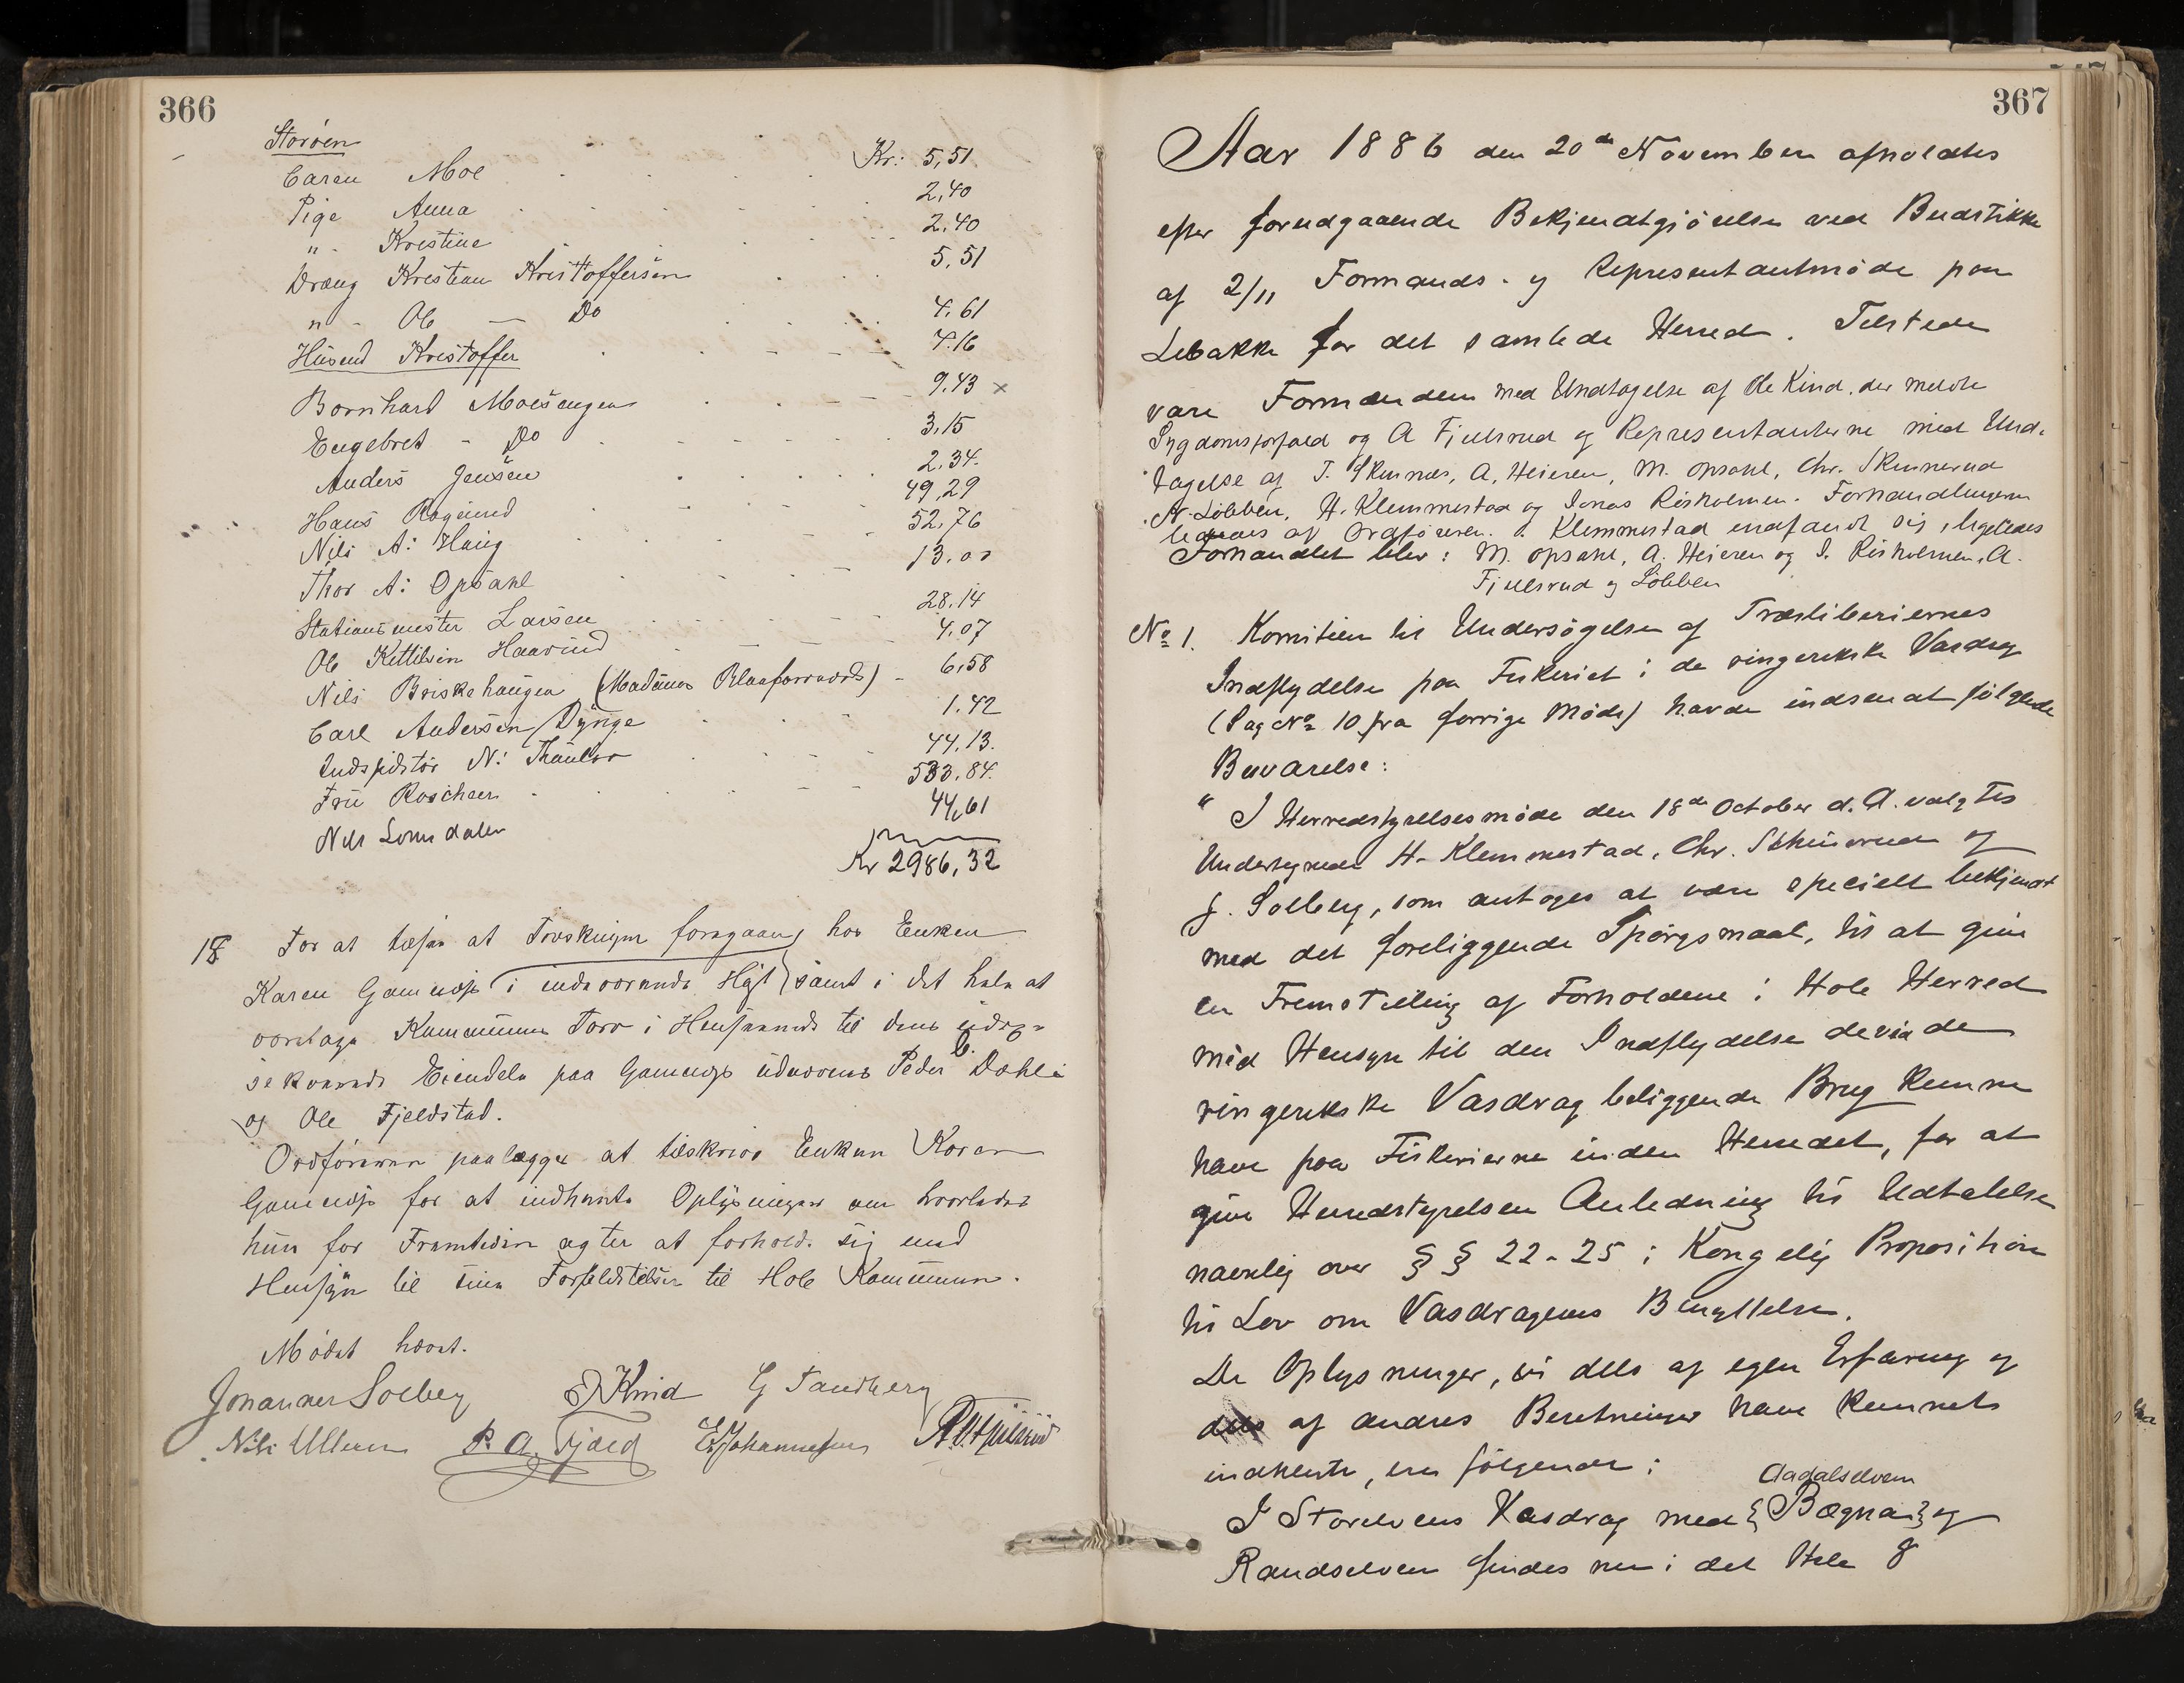 366
Storøen
Caren Moe Kr: 5,51
Pige Anna 2,40
" - Kristine 2,40
Dræng Kristian Kristoffersen 5,51
" - Ole — Do 4,61
Husmd Kristoffer 7.16
Bernhard Moesengen 9.43 ×
Engebret - Do 3,15
Anders Jensen 2.34.
Hans Rogsund 49,29
Nils A: Haug 52,76
Thor A: Opsahl 13.00
Stationsmester Larsen 28.14
Ole Kittilsen Haarud 4.07
Nils Briskehaugen (Madame Blaafarveværk) - 6,58
Carl Andersen Dynge 1.42
Indspektør N: Thaulow 44.13.
Frü Roscher 533.84.
Nils Lomsdalen 44,61
Kr 2986,32
18 For at tilse at Torvskuren foregaar hos Enken
Karen Gomnæs i indeværende Høst samt i det hele at
varetage Kommunens Tarv i Henseende til dens
Eiendele paa Gomnæs udnævnes Peder B. Dahl
og Ole Fjeldstad.
Ordføreren paalægges at tilskrive Enken Karen
Gomnæs for at indhente Oplysninger om hvorledes
hun for Fremtiden agter at forholde sig med
Hensyn til sine Forpligtelser til Hole Kommune.
Mødet hævet.
Johannes Solberg O Kind G Tandberg
Nils Ullern P. A. Fjeld E Johannesen A. Fjulsrud
367
Aar 1886 den 20de November afholdtes
efter forudgaaende Bekjendtgjørelse ved Budstikke
af 2/11 Formands- og Representantmøde paa
Lebakke for det samlede Herred. Tilstede
vare Formændene med Undtagelse af Ole Kind, der meldte
Sygdomsforfald og A Fjulsrud og Representanterne med Und-
tagelse af T. Skurnæs, A, Heieren, M. Opsahl, Chr. Skinnerud
N. Løbben, H. Klemmestad og Jonas Risholmen. Forhandlingerne
lededes af Ordføreren. Klemmestad indfandt sig, ligeledes
Forhandlet blev: M. Opsahl, A. Heieren og J. Risholmen, A.
Fjulsrud og Løbben
No 1. Komiteen til Undersøgelse af Træsliberiernes
Indflydelse paa Fiskeriet i de ringerikske Vasdrag
(Sag No 10 fra forrige Møde) havde indsendt følgende
Besvarelse:
" I Herredstyrelsesmøde den 18de October d. A. valgtes
Undertegnede H. Klemmestad, Chr. Skinnerud og
J. Solberg, som antoges at være specielt bekjendt
med det foreliggende Spørgsmaal, til at give
en Fremstilling af Forholdene i Hole Herred
med Hensyn til den Indflydelse de via de
ringerikske Vasdrag beliggende Brug kunne
have paa Fiskerierne inden Herredet, for at
give Herredstyrelsen Anledning til Udtalelse
navnlig over § § 22-25 i Kongelig Proposition
til Lov om Vasdragenes Benyttelse.
De Oplysninger, vi dels af egen Erfaring og
dels af andres Beretninger have kunnet
indhente, ere følgende:
Aadalselven
I Storelvens Vasdrag med {Bægna} og
Randselven findes nu i det Hele 8